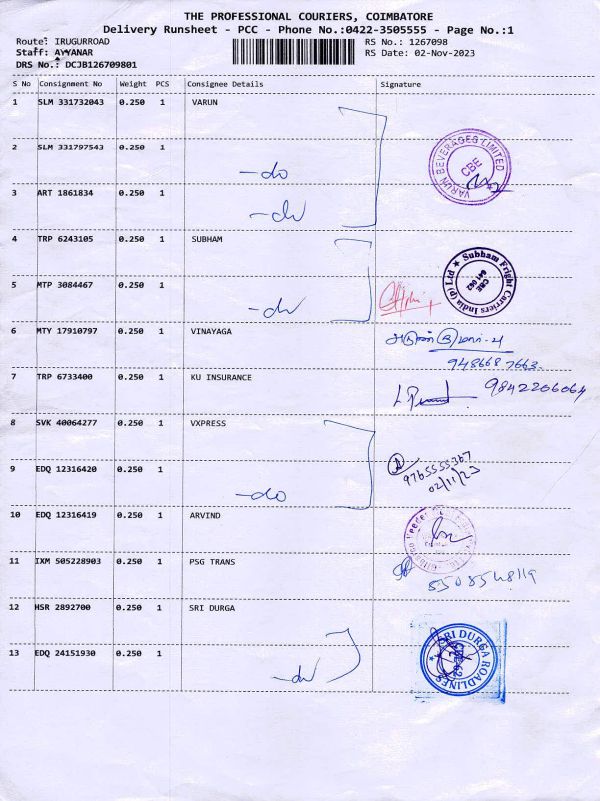 THE PROFESSIONAL COURIERS, COIMBATORE
Delivery Runsheet - PCC - Phone No.:0422-3505555 - Page No.:1
Route: IRUGURROAD
RS No.: 1267098
Staff: AYYANAR
RS Date: 02-Nov-2023
DRS No.: DCJB126709801
S No Consignment No Weight PCS Consignee Details Signature
1 SLM 331732043 0.250 1 VARUN
2 SLM 331797543 0.250 1 -do
VARUN BEVERAGES LIMITED CBE
3 ART 1861834 0.250 1 -do
4 TRP 6243105 0.250 1 SUBHAM
5 MTP 3084467 0.250 1 -do
Subham Fright Carriers India (p) Ltd ★ CBE 641 062
6 MTY 17910797 0.250 1 VINAYAGA
948668 7663
7 TRP 6733400 0.250 1 KU INSURANCE
9842206064
8 SVK 40064277 0.250 1 VXPRESS
9 EDQ 12316420 0.250 1 -do
9765555367
02/11/23
10 EDQ 12316419 0.250 1 ARVIND
11 IXM 505228903 0.250 1 PSG TRANS
8508548119
12 HSR 2892700 0.250 1 SRI DURGA
13 EDQ 24151930 0.250 1 -do
SRI DURGA ROADLINES